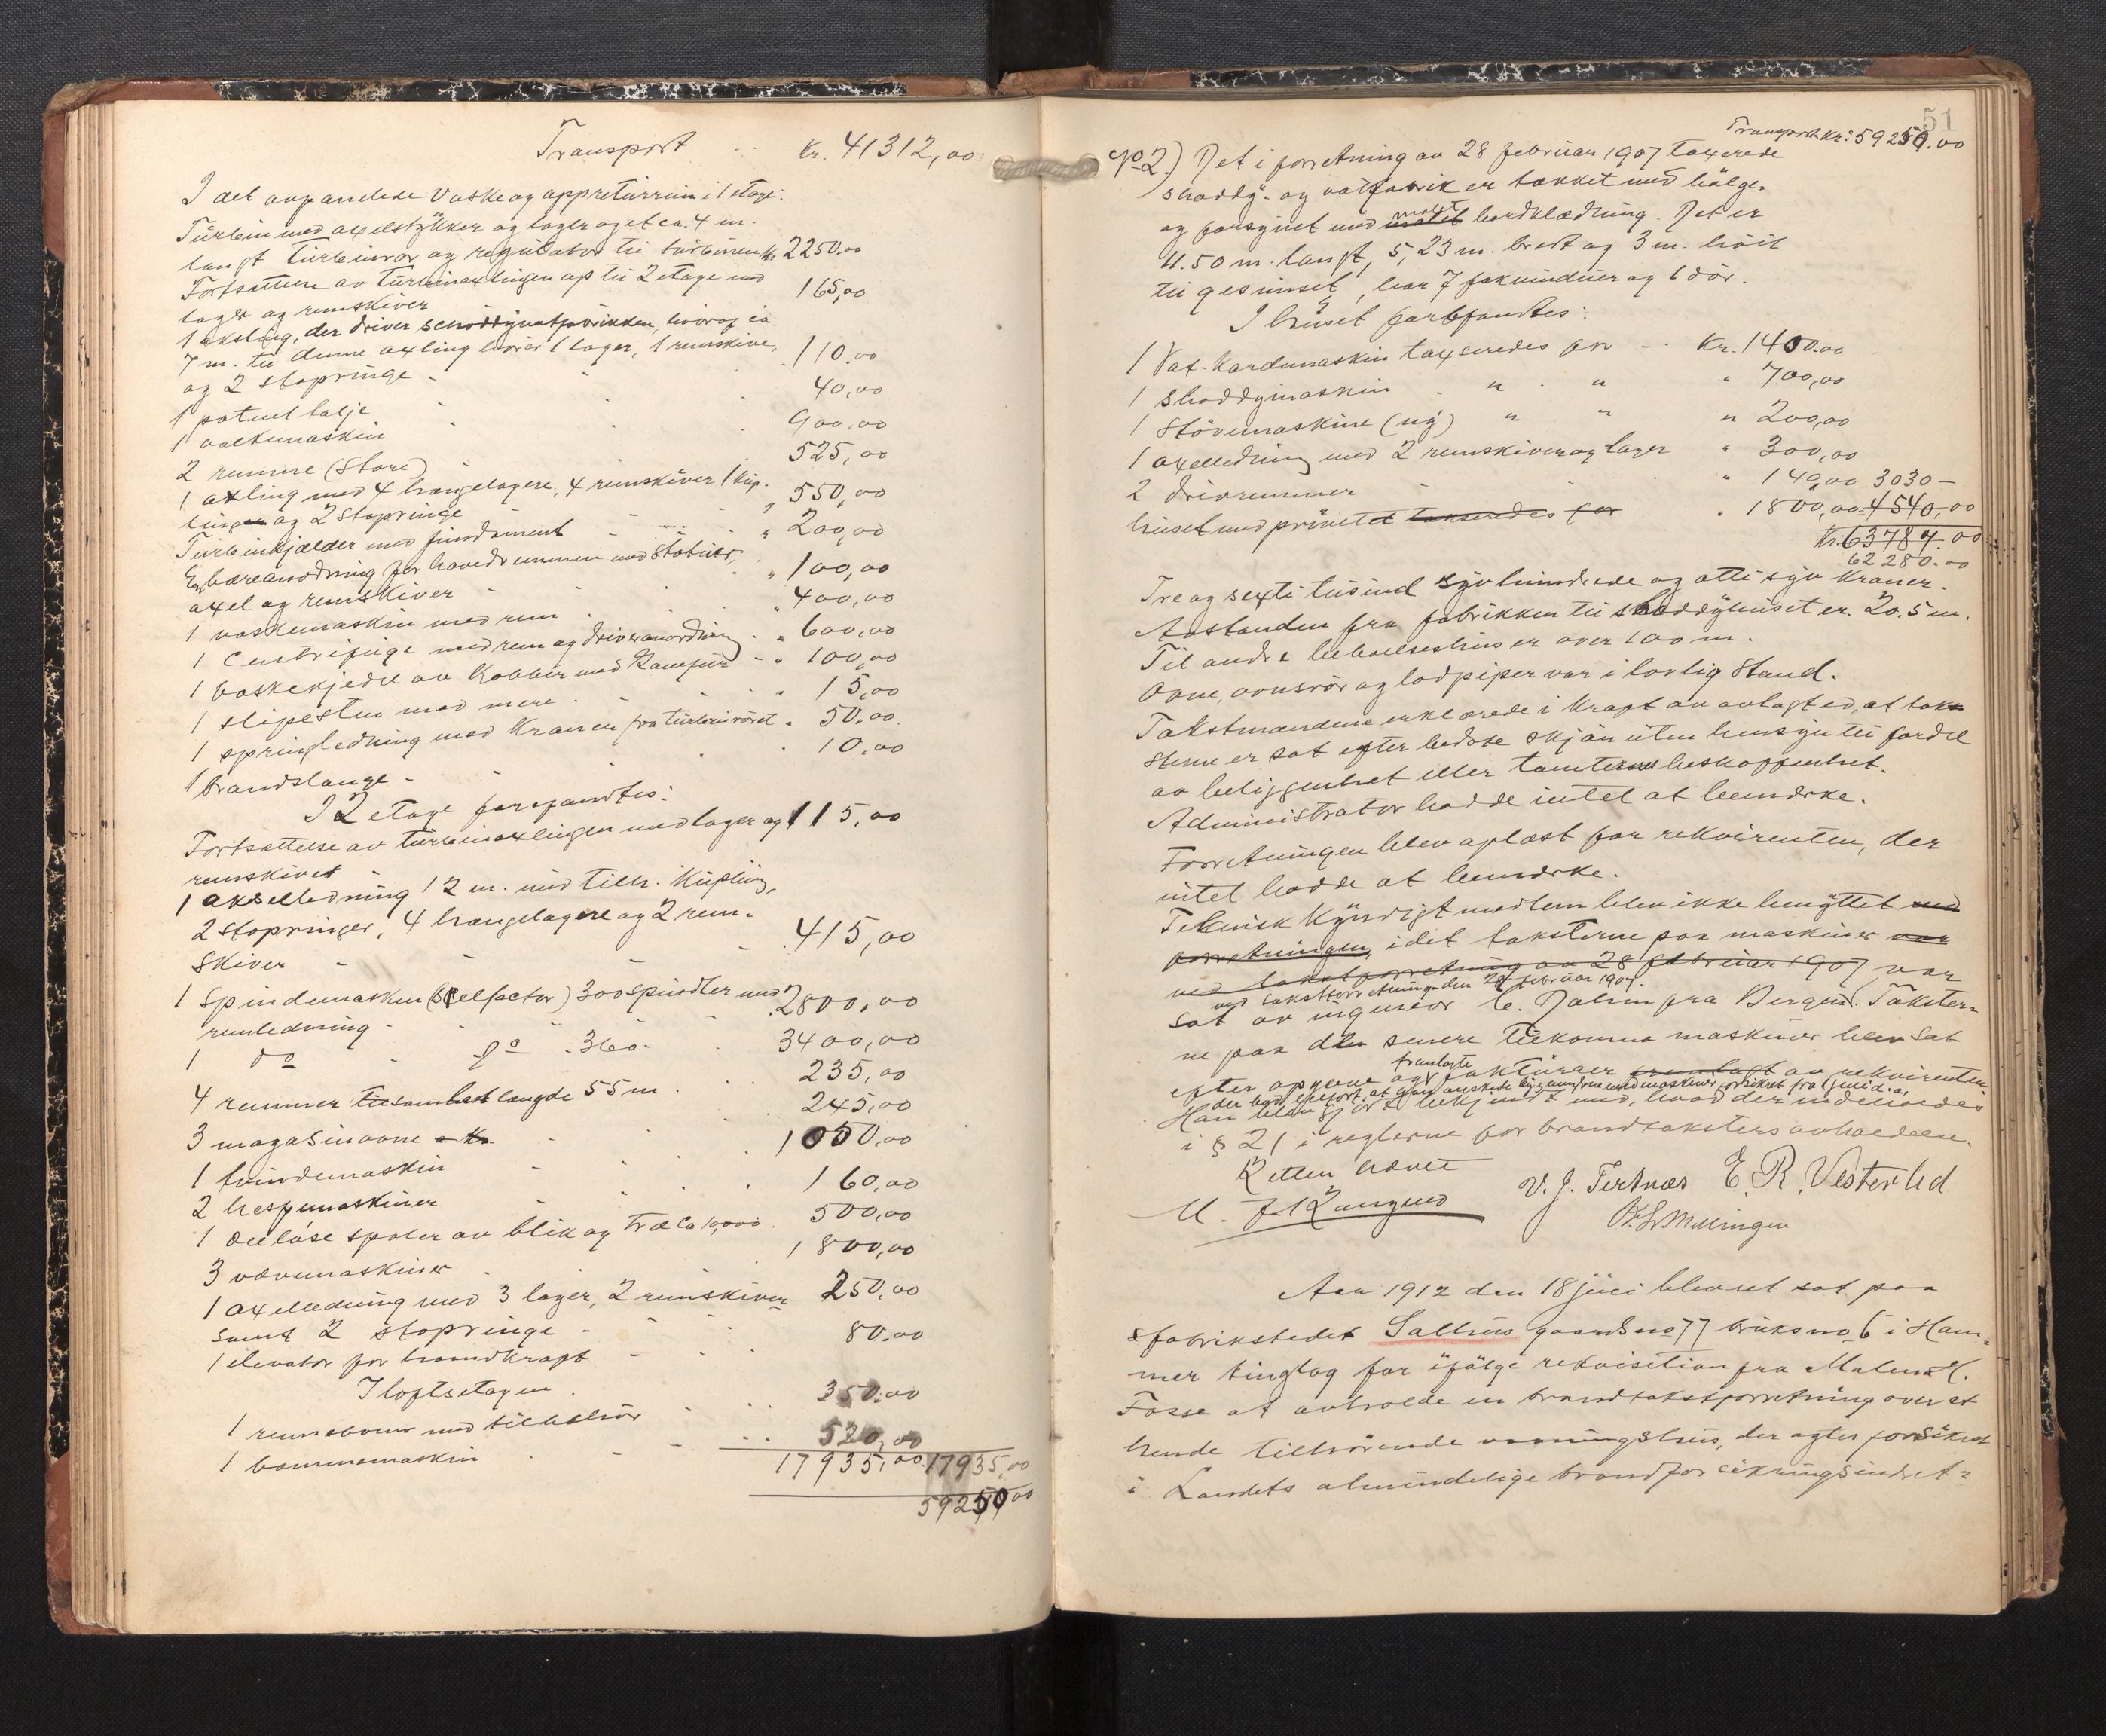 Transport - - Kr. 41312,00
I det ovpaandede Vaske og appreturrum i 1 etage:
Türbin med axelstykker og lager og et ca. 4 m.
langt türbinrør og regulator til türbinen Kr 2250.00
Fortsættelse av türbinaxlingen op til 2 etage med
lager og remskiver 165,00
1 aksling, der driver schoddyvatfabrikken, hvorav ca.
7 m. til denne axling hører 1 lager, 1 remskive,
og 2 stopringe - 110.00
1 patent talje 40,00
1 valkemaskin 900.00
2 remme (store) 525,00
1 axling med 4 hængelagere, 4 remskiver 1 kup-
ling og 2 stopringe 550,00
Türbinkjælder med fundament " 200,00
En bæreanordning for hovedremmen med stativer,
axel og remskiver " 100,00
1 vaskemaskin med rem " 400,00
1 Centrifuge med rem og driveanordning " 600,00
1 vaskekjedel av Kobber med Kamfur - " 100,00
1 slipesten med mere " 15,00
1 springledning med Kraner fra türbinrøret " 50.00
1 brandslange - 10,00
I 2 etage forefandtes:
Fortsættelse av türbinaxlingen med lager og 115,00
remskivet
1 akselledning 12 m. med tilh. Küpling,
2 stopringer, 4 hængelagere og 2 rem-
skiver - 415,00
1 Spindemaskin (Selfactor) 300 spindler med 2800,00
remledning -
1 do - do - 360 - 3400,00
4 remmer tilsamlet længde 55 m. 235,00
3 magasinovne 245,00
1 tvindemaskin 1050,00
2 hespemaskiner 160,00
1 del løse spoler av blik og træ Ca 10,000. 500,00
3 vævemaskiner 1800,00
1 axelledning med 3 lager, 2 remskiver 250,00
samt 2 stopringe -
1 elevator for haandkraft - 80.00
I loftsetagen.
1 rensevner med tilbehør 350.00
1 bommemaskin 520,00
17935,00 17935,00
59250 00
51
Transport Kr: 59250.00
No 2.) Det i forretning av 28 februar 1907 taxerede
shoddy- og vatfabrik er tækket med bølge-
og forsynet med malet bordklædning. Det er
11.50 m. langt, 5,23 m. bredt og 3 m. høit
til gesimset, har 7 fakvinduer og 1 dør.
I huset forefandtes:
1 Vat-Kardemaskin taxeredes for - Kr. 1400.00
1 shoddymaskin " " " 700,00
1 Støvemaskine (ny) " " " 200,00
1 axelledning med 2 remskiver og lager " 300,00
2 drivremmer " 140,00 3030 -
huset med privetet takseredes for " 1800,00 4540,00
Kr. 63787.00
62280.00
Tre og sexti tusind syvhundrede og otti syv Kroner.
Avstanden fra fabrikken til shoddyhuset er 20.5 m.
Til andre beboelseshus er over 100 m.
Ovne, ovnsrør og lodpiper var i lovlig Stand.
Takstmændene erklærede i Kraft av avlagt ed, at tak-
sterne er sat efter bedste skjøn uten hensyn til fordel
av beliggenhet eller tomtens beskaffenhet.
Administrator hadde intet at bemerke.
Forretningen blev oplæst for rekvirenten, der
intet hadde at bemerke.
Teknisk Kyndigt medlem blev ikke benyttet ved
forretningen, idet taksterne paa maskiner var
ved takstforretning av 28 februar 1907 var
ved takstforretningen den 28 februar 1907.
sat av ingeniør C. Dahm fra Bergen. Takster-
ne paa de senere tilkomne maskiner blev sat
efter opgave og fremlagte fakturaer fremlagt av rekvirenten
Han blev gjort bekjendt med, hvad der indeholdes
i § 21 i reglerne for brandtaksters avholdelse.
Retten hævet
V. J. Tertnæs E. R. Vesterlid
Aar 1912 den 18 juni blev ret sat paa
fabrikstedet Salhus gaardsno 77 bruksno 6 i Ham-
mer tinglag for ifølge rekvisition fra Malene H.
Fosse at avholde en brandtakstforretning over et
hende tilhørende vaaningshus, der agtes forsikret
i Landets almindelige brandforsikringsindret-